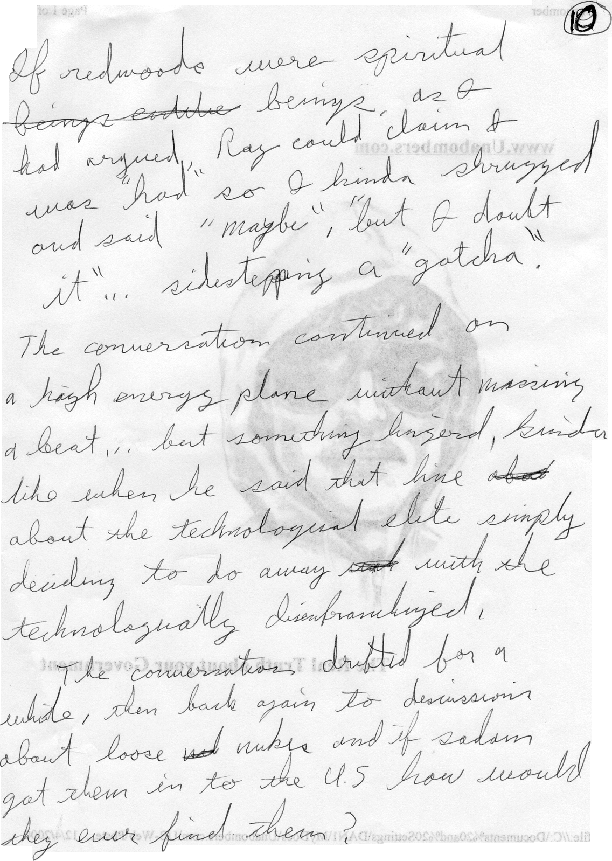 10
If redwoods were spiritual
beings beings, as I
had argued, Ray could claim I
was "had" so I kinda shrugged
and said "maybe", "but I doubt
it"... sidestepping a "gotcha".
The conversation continued on
a high energy plane without missing
a beat... but something lingerd, kinda
like when he said that line
about the technological elite simply
deciding to do away with the
technologually disenfranchized.
The conversation drifted for a
while, then back again to discussions
about loose nukes and if sadam
got them in to the U.S how would
they ever find them?
www.Unabombers.com
The Real Truth About your Government